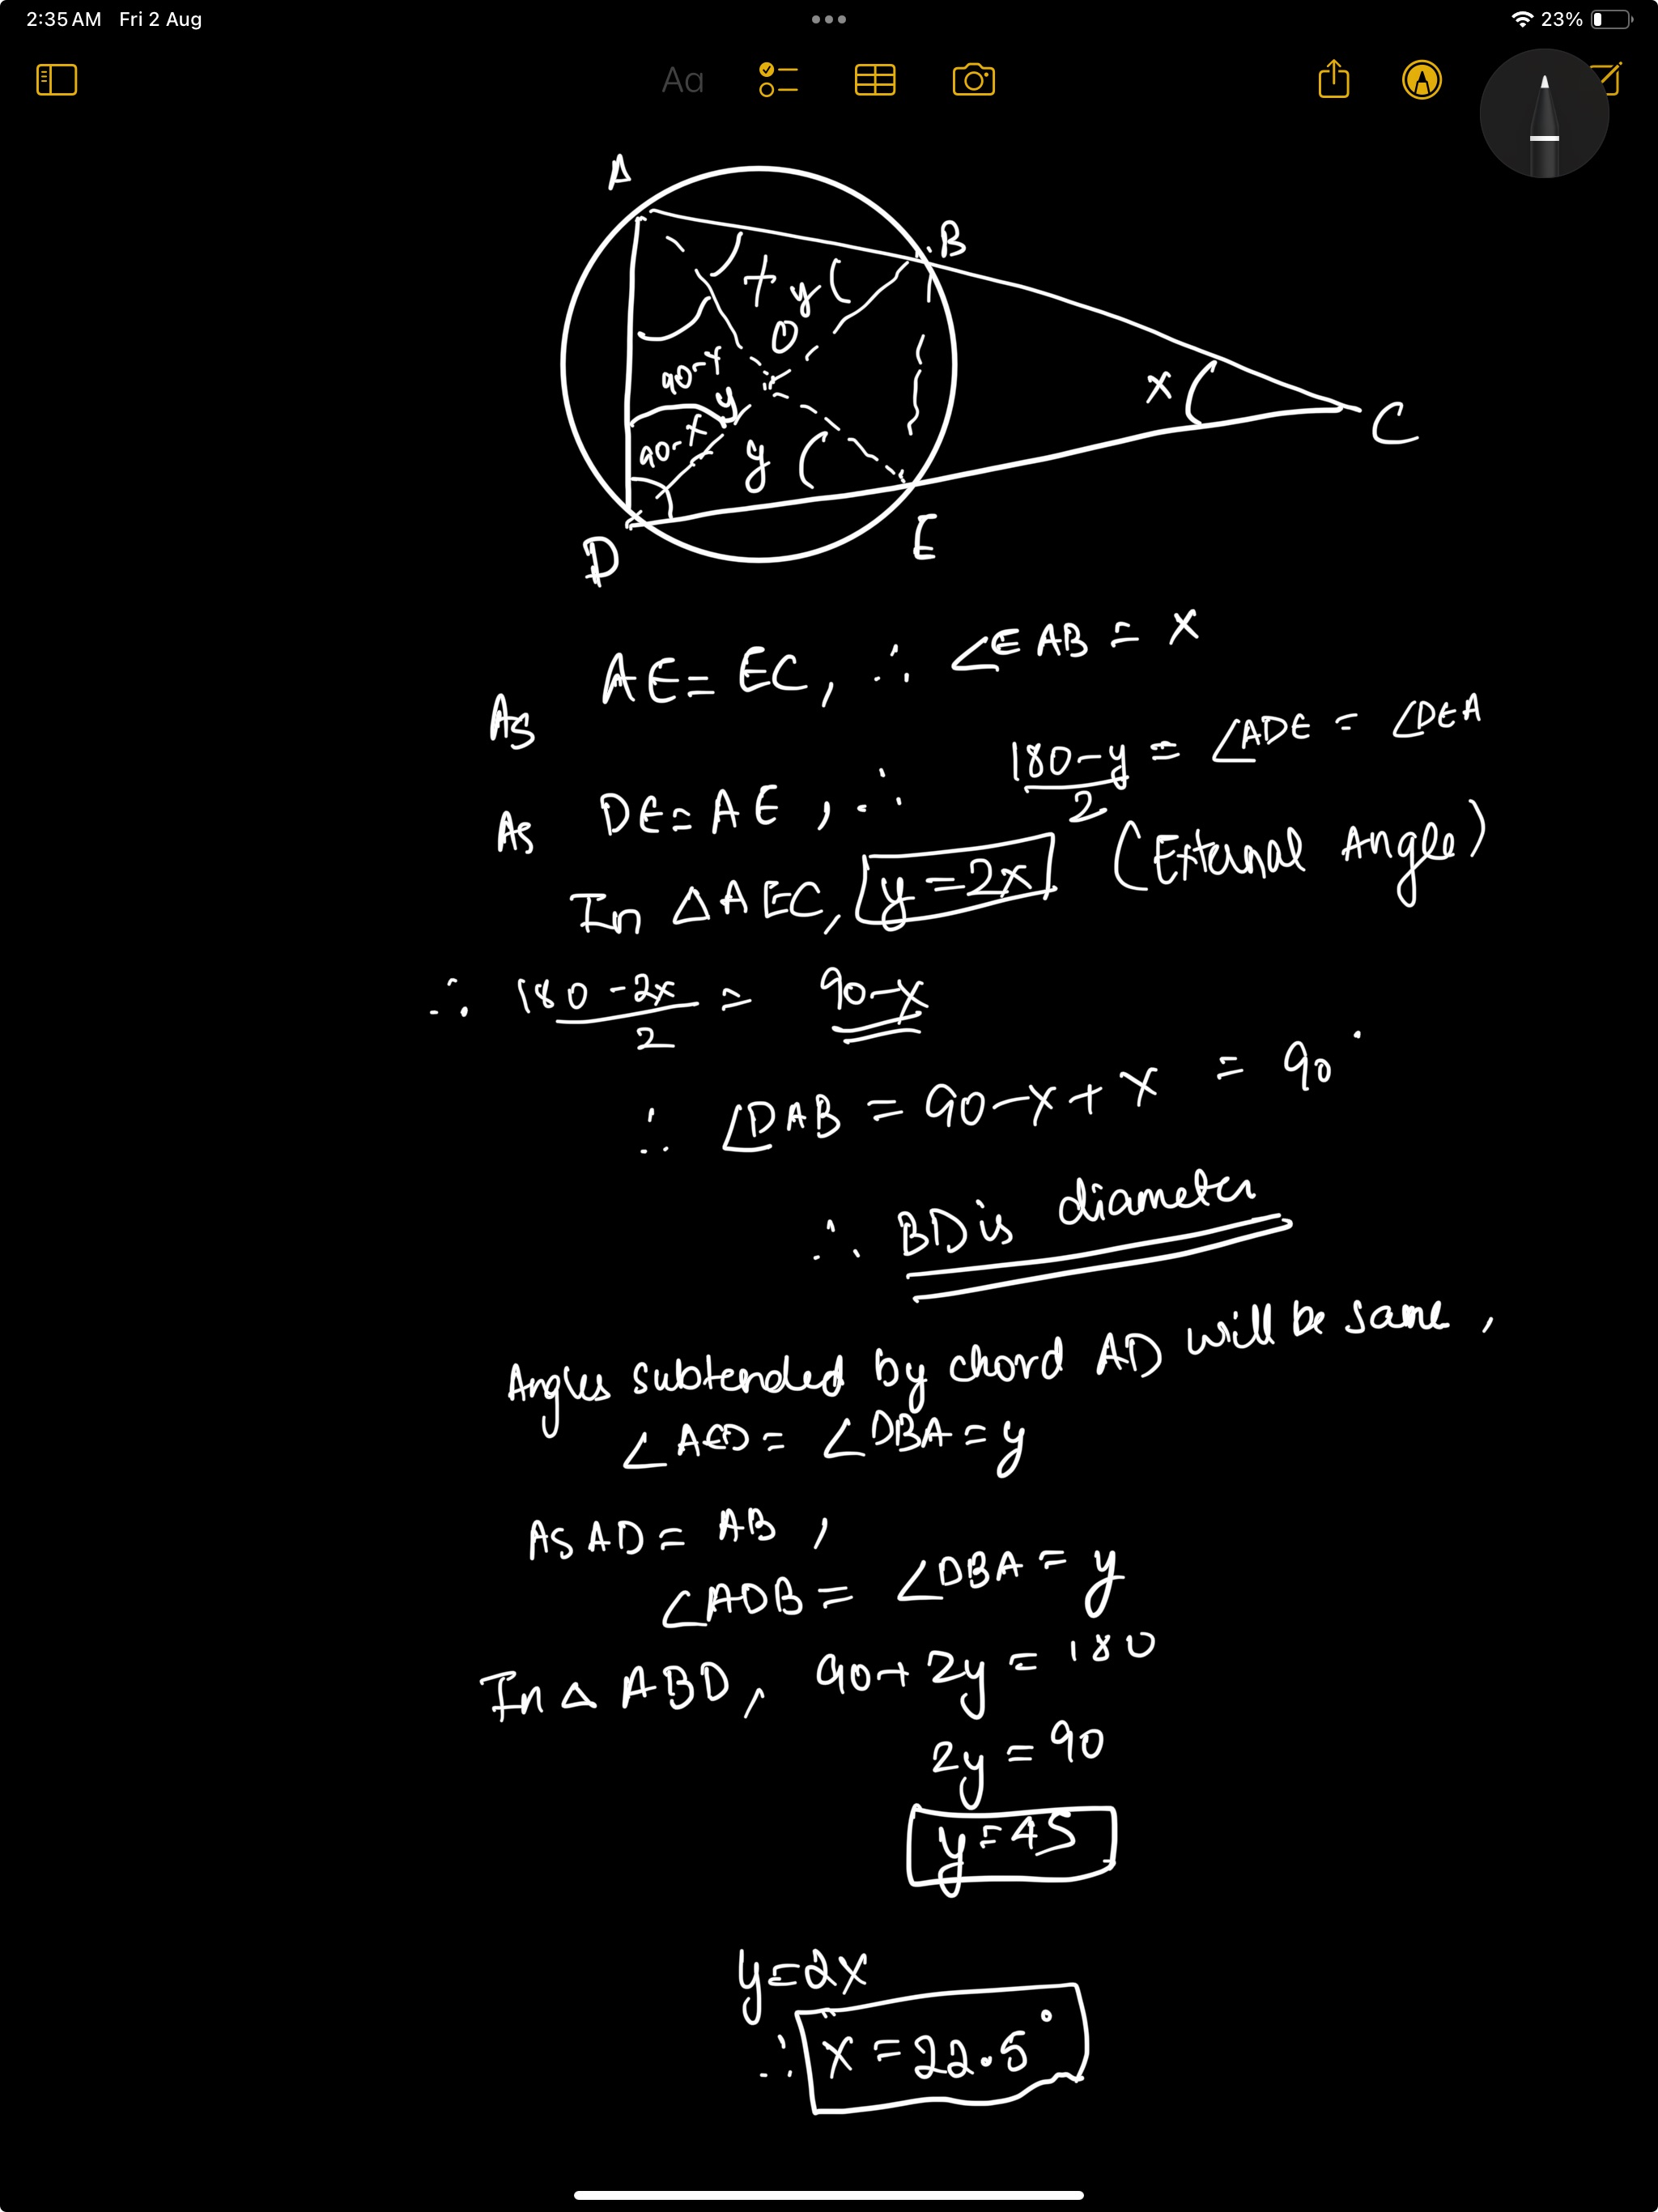 2:35 AM Fri 2 Aug
23%
Aa
A
B
x
y
O
90-x
y
x
C
90-x
y
D
E
As AE = EC, ∴ ∠EAB = x
As DE = AE, ∴ 180-y/2 = ∠ADE = ∠DEA
In △AEC, y = 2x (External Angle)
∴ 180-2x/2 = 90-x
∴ ∠DAB = 90-x+x = 90°
∴ BD is diameter
Angles subtended by chord AD will be same,
∠AED = ∠DBA = y
As AD = AB,
∠ADB = ∠DBA = y
In △ ABD, 90+2y = 180
2y = 90
y = 45
y = 2x
∴ x = 22.5°